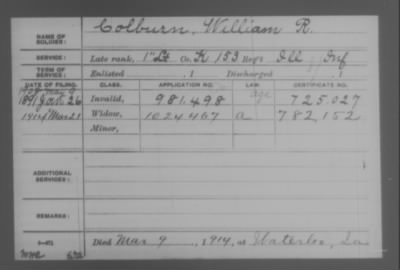 NAME OF SOLDIER: Colburn, William R.
SERVICE: Late rank, 1" Lt Co. K 153 Reg't Ill Inf
TERM OF SERVICE: Enlisted , 1 Discharged , 1
DATE OF FILING. CLASS. APPLICATION NO. LAW. CERTIFICATE NO.
age
1891 Jan. 26 Invalid, 981,498 725,027
1914 Mar 21 Widow, 1024467 a 782,152
Minor,
ADDITIONAL SERVICES:
REMARKS:
Died Mar 9 , 1914, at Waterloo, Ia